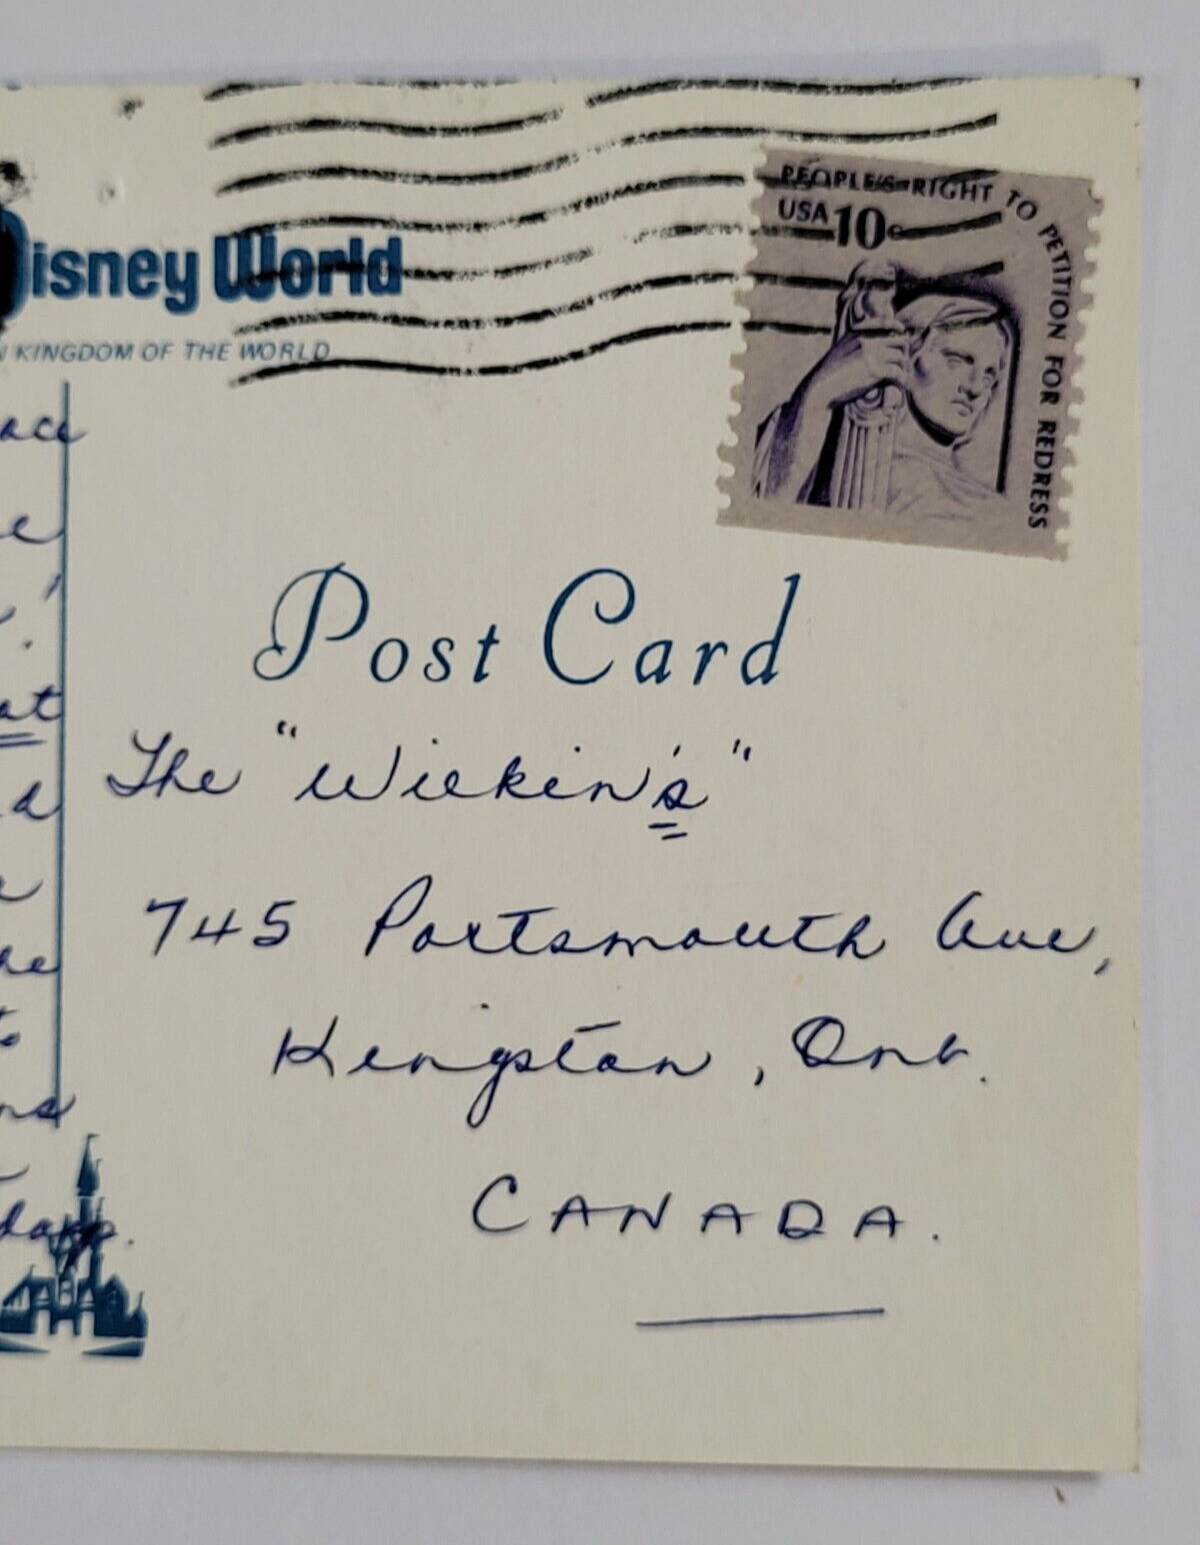 PEOPLE'S RIGHT TO PETITION FOR REDRESS
USA 10c
Disney World
KINGDOM OF THE WORLD
Post Card
The "Wilkin's"
745 Portsmouth Ave,
Kingston, Ont.
CANADA.